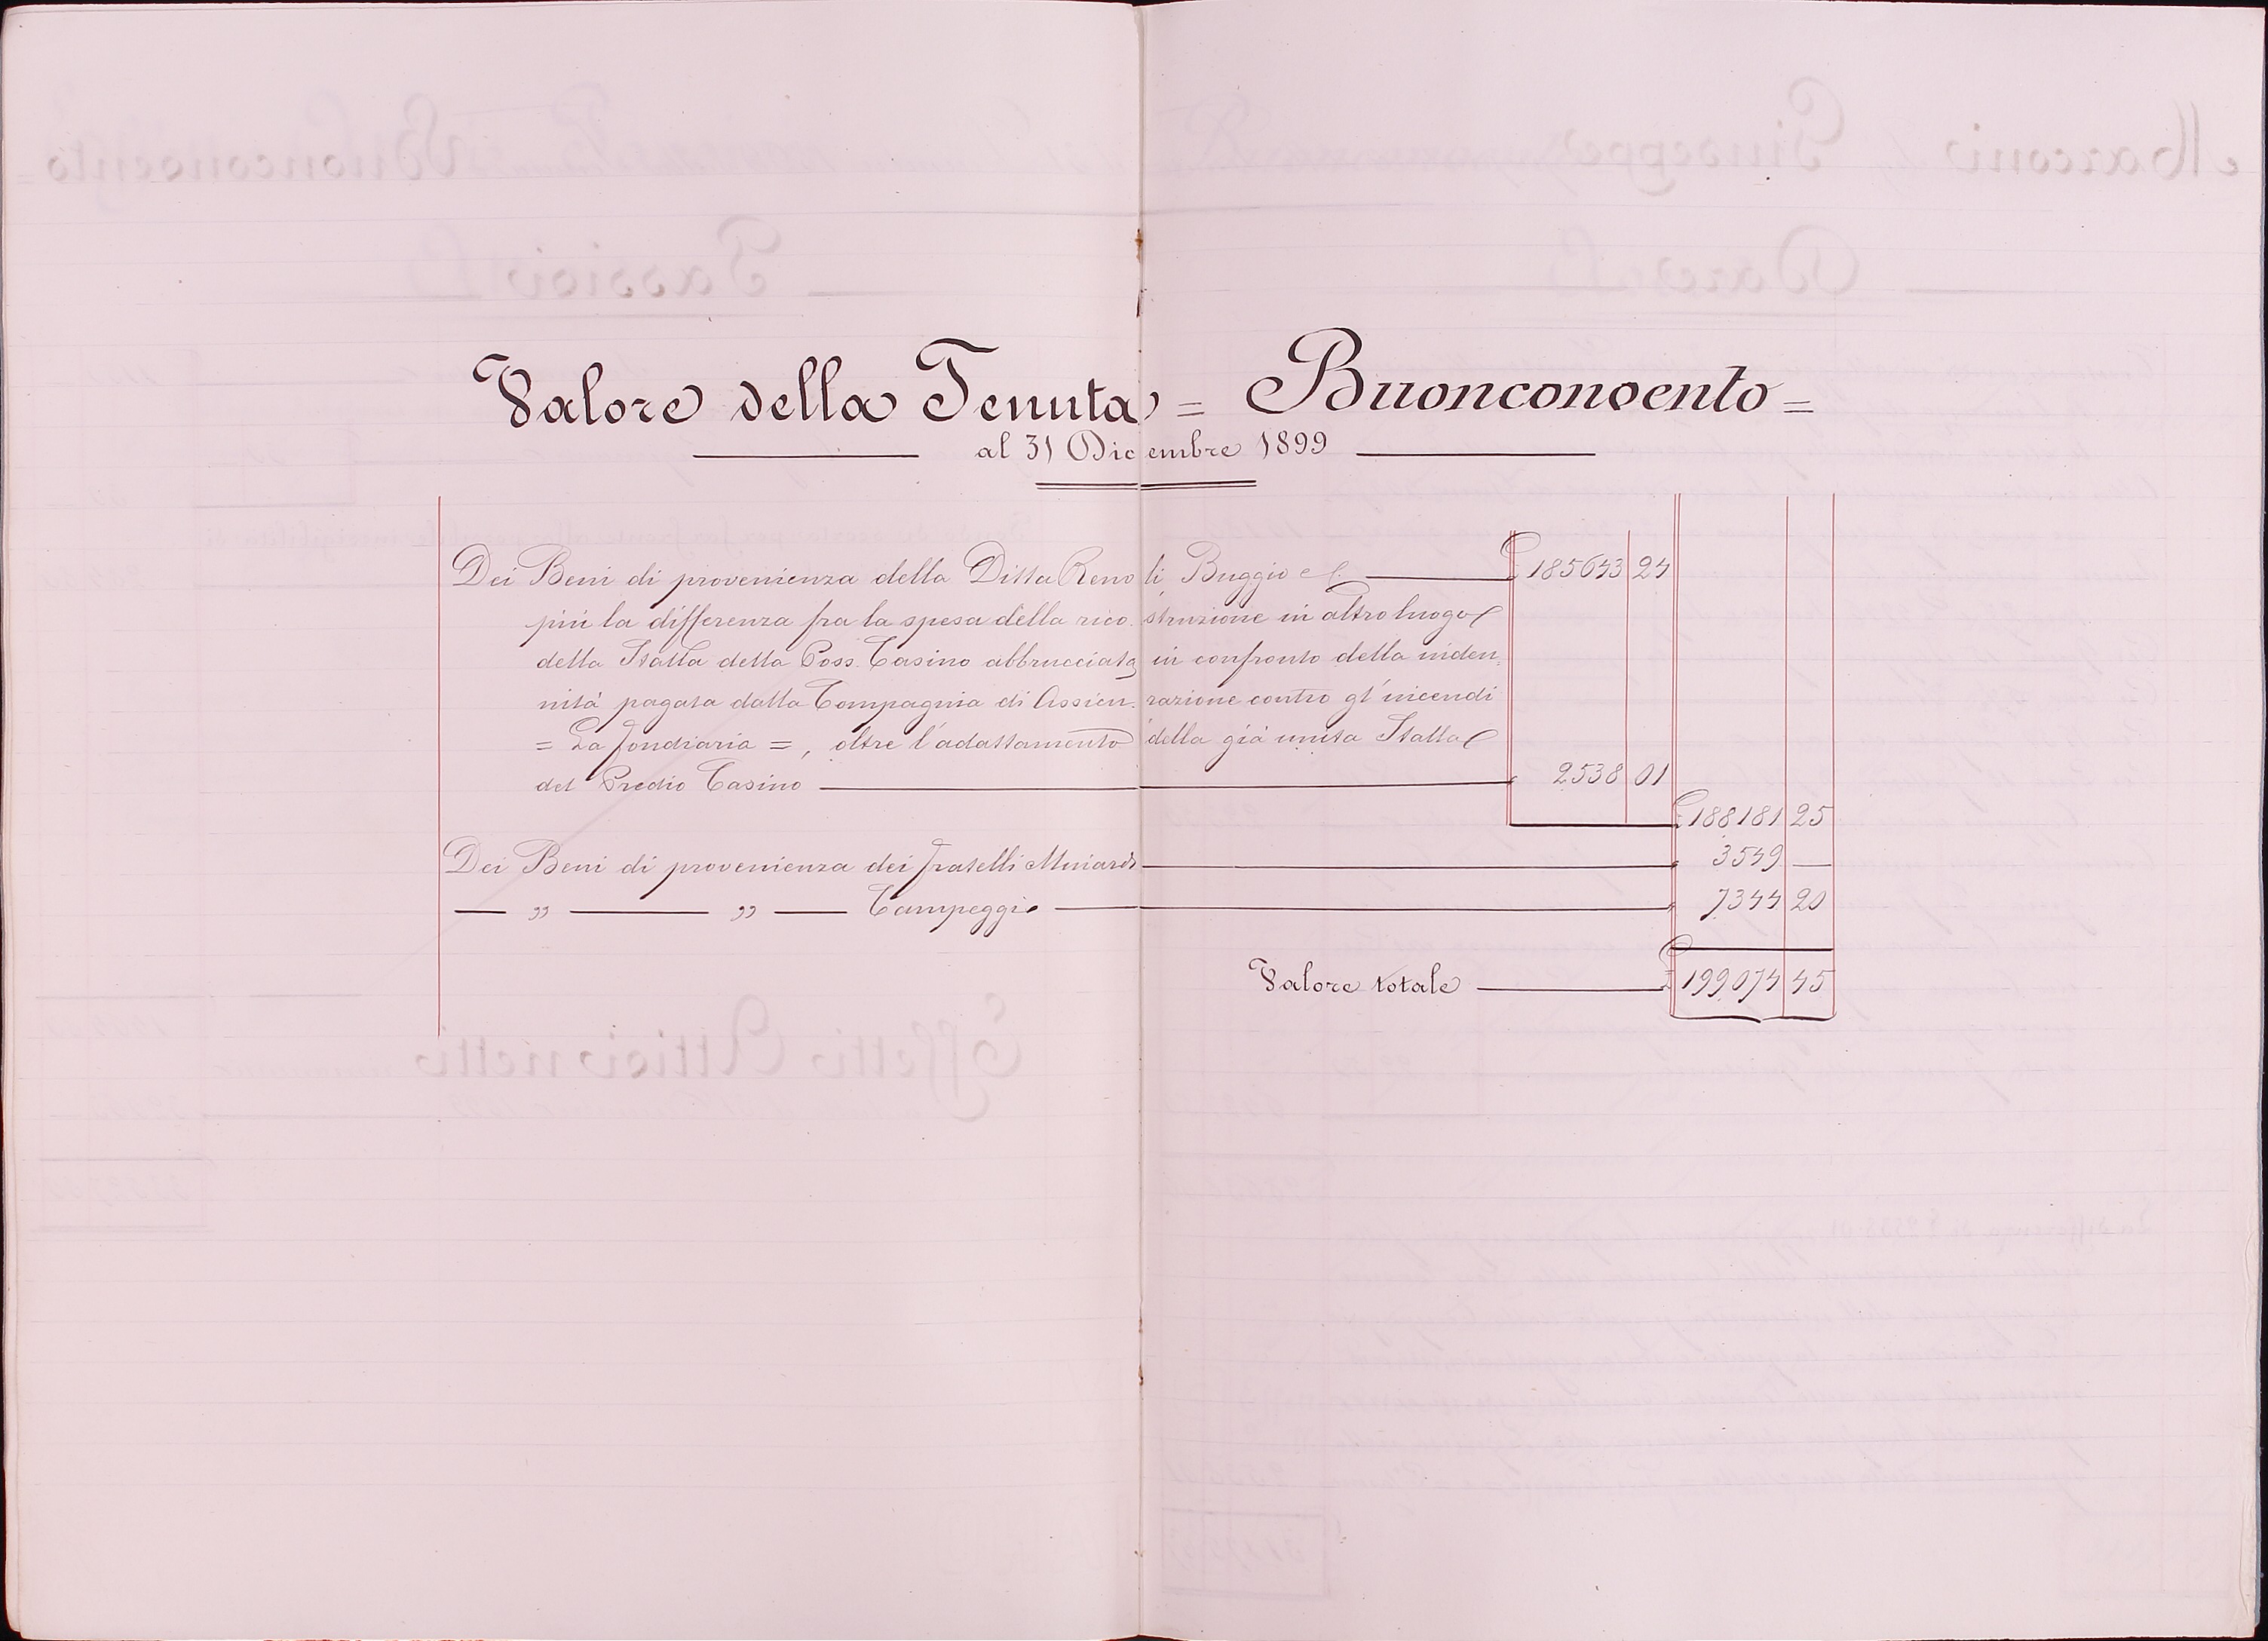 Valore della Tenuta = Buonconvento =
al 31 Dicembre 1899
Dei Beni di provenienza della Ditta Renoli, Buggio e C. £ 185643 24
più la differenza fra la spesa della rico-struzione in altro luogo
della Stalla della Poss. Casino abbrucciata in confronto della inden-
nità pagata dalla Compagnia di Assicu-razione contro gl'incendi
= La Fondiaria =, oltre l'adattamento della già unita Stalla
del Predio Casino " 2538 01
£ 188181 25
Dei Beni di provenienza dei fratelli Muiardi " 3549 —
— " — " — Campeggi " 7344 20
Valore totale £ 199074 45